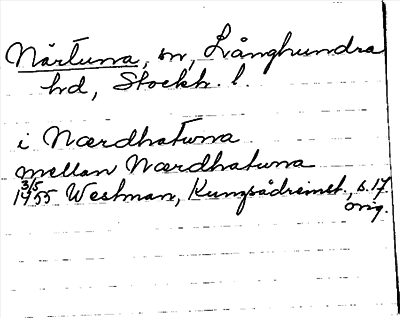 Närtuna, sn, Långhundra
hd, Stockh. l.
i Nærdhatuna
mellan Nærdhatuna
3/5 1455 Westman, Kungsådreinst., s. 17.
orig.